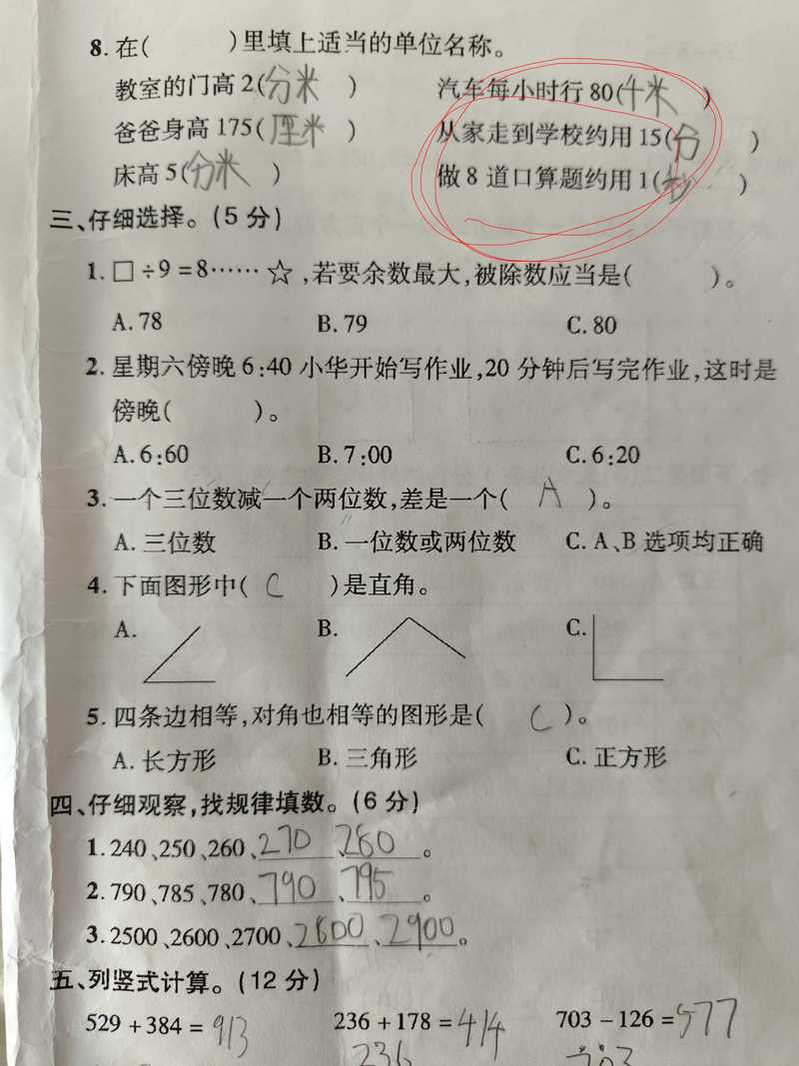 8. 在(  )里填上适当的单位名称。
教室的门高 2(分米) 汽车每小时行 80(千米)
爸爸身高 175(厘米) 从家走到学校约用 15(分)
床高 5(分米) 做 8 道口算题约用 1(秒)
三、仔细选择。(5 分)
1. □÷9=8……☆,若要余数最大,被除数应当是(  )。
A. 78 B. 79 C. 80
2. 星期六傍晚 6:40 小华开始写作业,20 分钟后写完作业,这时是
傍晚(  )。
A. 6:60 B. 7:00 C. 6:20
3. 一个三位数减一个两位数,差是一个( A )。
A. 三位数 B. 一位数或两位数 C. A、B 选项均正确
4. 下面图形中( C )是直角。
A. B. C.
5. 四条边相等,对角也相等的图形是( C )。
A. 长方形 B. 三角形 C. 正方形
四、仔细观察,找规律填数。(6 分)
1. 240、250、260、270、280。
2. 790、785、780、790、795。
3. 2500、2600、2700、2800、2900。
五、列竖式计算。(12 分)
529+384=913 236+178=414 703-126=577
236 703